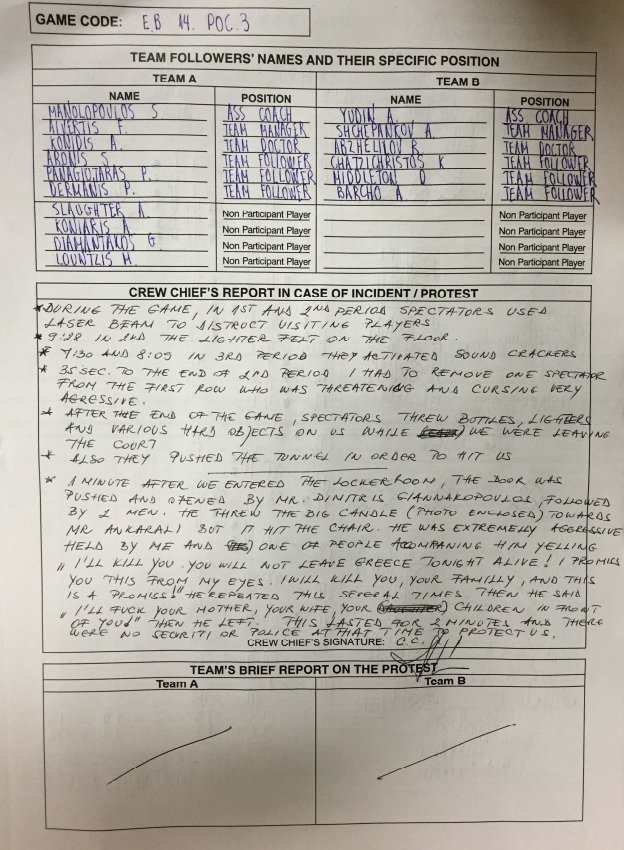 GAME CODE: EB 14. POC. 3
TEAM FOLLOWERS' NAMES AND THEIR SPECIFIC POSITION
TEAM A TEAM B
NAME POSITION NAME POSITION
MANOLOPOULOS S ASS COACH YUDIN A. ASS COACH
ALVERTIS F. TEAM MANAGER SHCHEPANKOV A. TEAM MANAGER
KONIDIS A. TEAM DOCTOR ABZHELILOV R. TEAM DOCTOR
ARONIS S TEAM FOLLOWER CHATZICHRISTOS K TEAM FOLLOWER
PANAGIOTARAS P. TEAM FOLLOWER MIDDLETON D TEAM FOLLOWER
DERMANIS P. TEAM FOLLOWER BARCHO A. TEAM FOLLOWER
SLAUGHTER A. Non Participant Player Non Participant Player
KONIARIS A. Non Participant Player Non Participant Player
DIAMANTAKOS G. Non Participant Player Non Participant Player
LOUNTZIS M. Non Participant Player Non Participant Player
CREW CHIEF'S REPORT IN CASE OF INCIDENT / PROTEST
* DURING THE GAME, IN 1ST AND 2ND PERIOD SPECTATORS USED
LASER BEAM TO DISTRUCT VISITING PLAYERS
* 9:28 IN 2ND THE LIGHTER FELT ON THE FLOOR.
* 7:30 AND 8:09 IN 3RD PERIOD THEY ACTIVATED SOUND CRACKERS
* 35 SEC. TO THE END OF 2ND PERIOD I HAD TO REMOVE ONE SPECTATOR
FROM THE FIRST ROW WHO WAS THREATENING AND CURSING VERY
AGRESSIVE.
* AFTER THE END OF THE GAME, SPECTATORS THREW BOTTLES, LIGHTERS
AND VARIOUS HARD OBJECTS ON US WHILE WE WERE LEAVING
THE COURT
* ALSO THEY PUSHED THE TUNNEL IN ORDER TO HIT US
* 1 MINUTE AFTER WE ENTERED THE LOCKERROOM, THE DOOR WAS
PUSHED AND OPENED BY MR. DIMITRIS GIANNAKOPOULOS, FOLLOWED
BY 2 MEN. HE THREW THE BIG CANDLE (PHOTO ENCLOSED) TOWARDS
MR ANKARALI BUT IT HIT THE CHAIR. HE WAS EXTREMELY AGGRESSIVE
HELD BY ME AND ONE OF PEOPLE ACOMPANING HIM YELLING
„I'LL KILL YOU. YOU WILL NOT LEAVE GREECE TONIGHT ALIVE! I PROMISS
YOU THIS FROM MY EYES. I WILL KILL YOU, YOUR FAMILLY, AND THIS
IS A PROMISS!" HE REPEATED THIS SEVERAL TIMES. THEN HE SAID
„I'LL FUCK YOUR MOTHER, YOUR WIFE, YOUR CHILDREN IN FRONT
OF YOU!" THEN HE LEFT. THIS LASTED FOR 2 MINUTES AND THERE
WERE NO SECURITI OR POLICE AT THAT TIME TO PROTECT US.
CREW CHIEF'S SIGNATURE: C.C.
TEAM'S BRIEF REPORT ON THE PROTEST
Team A Team B